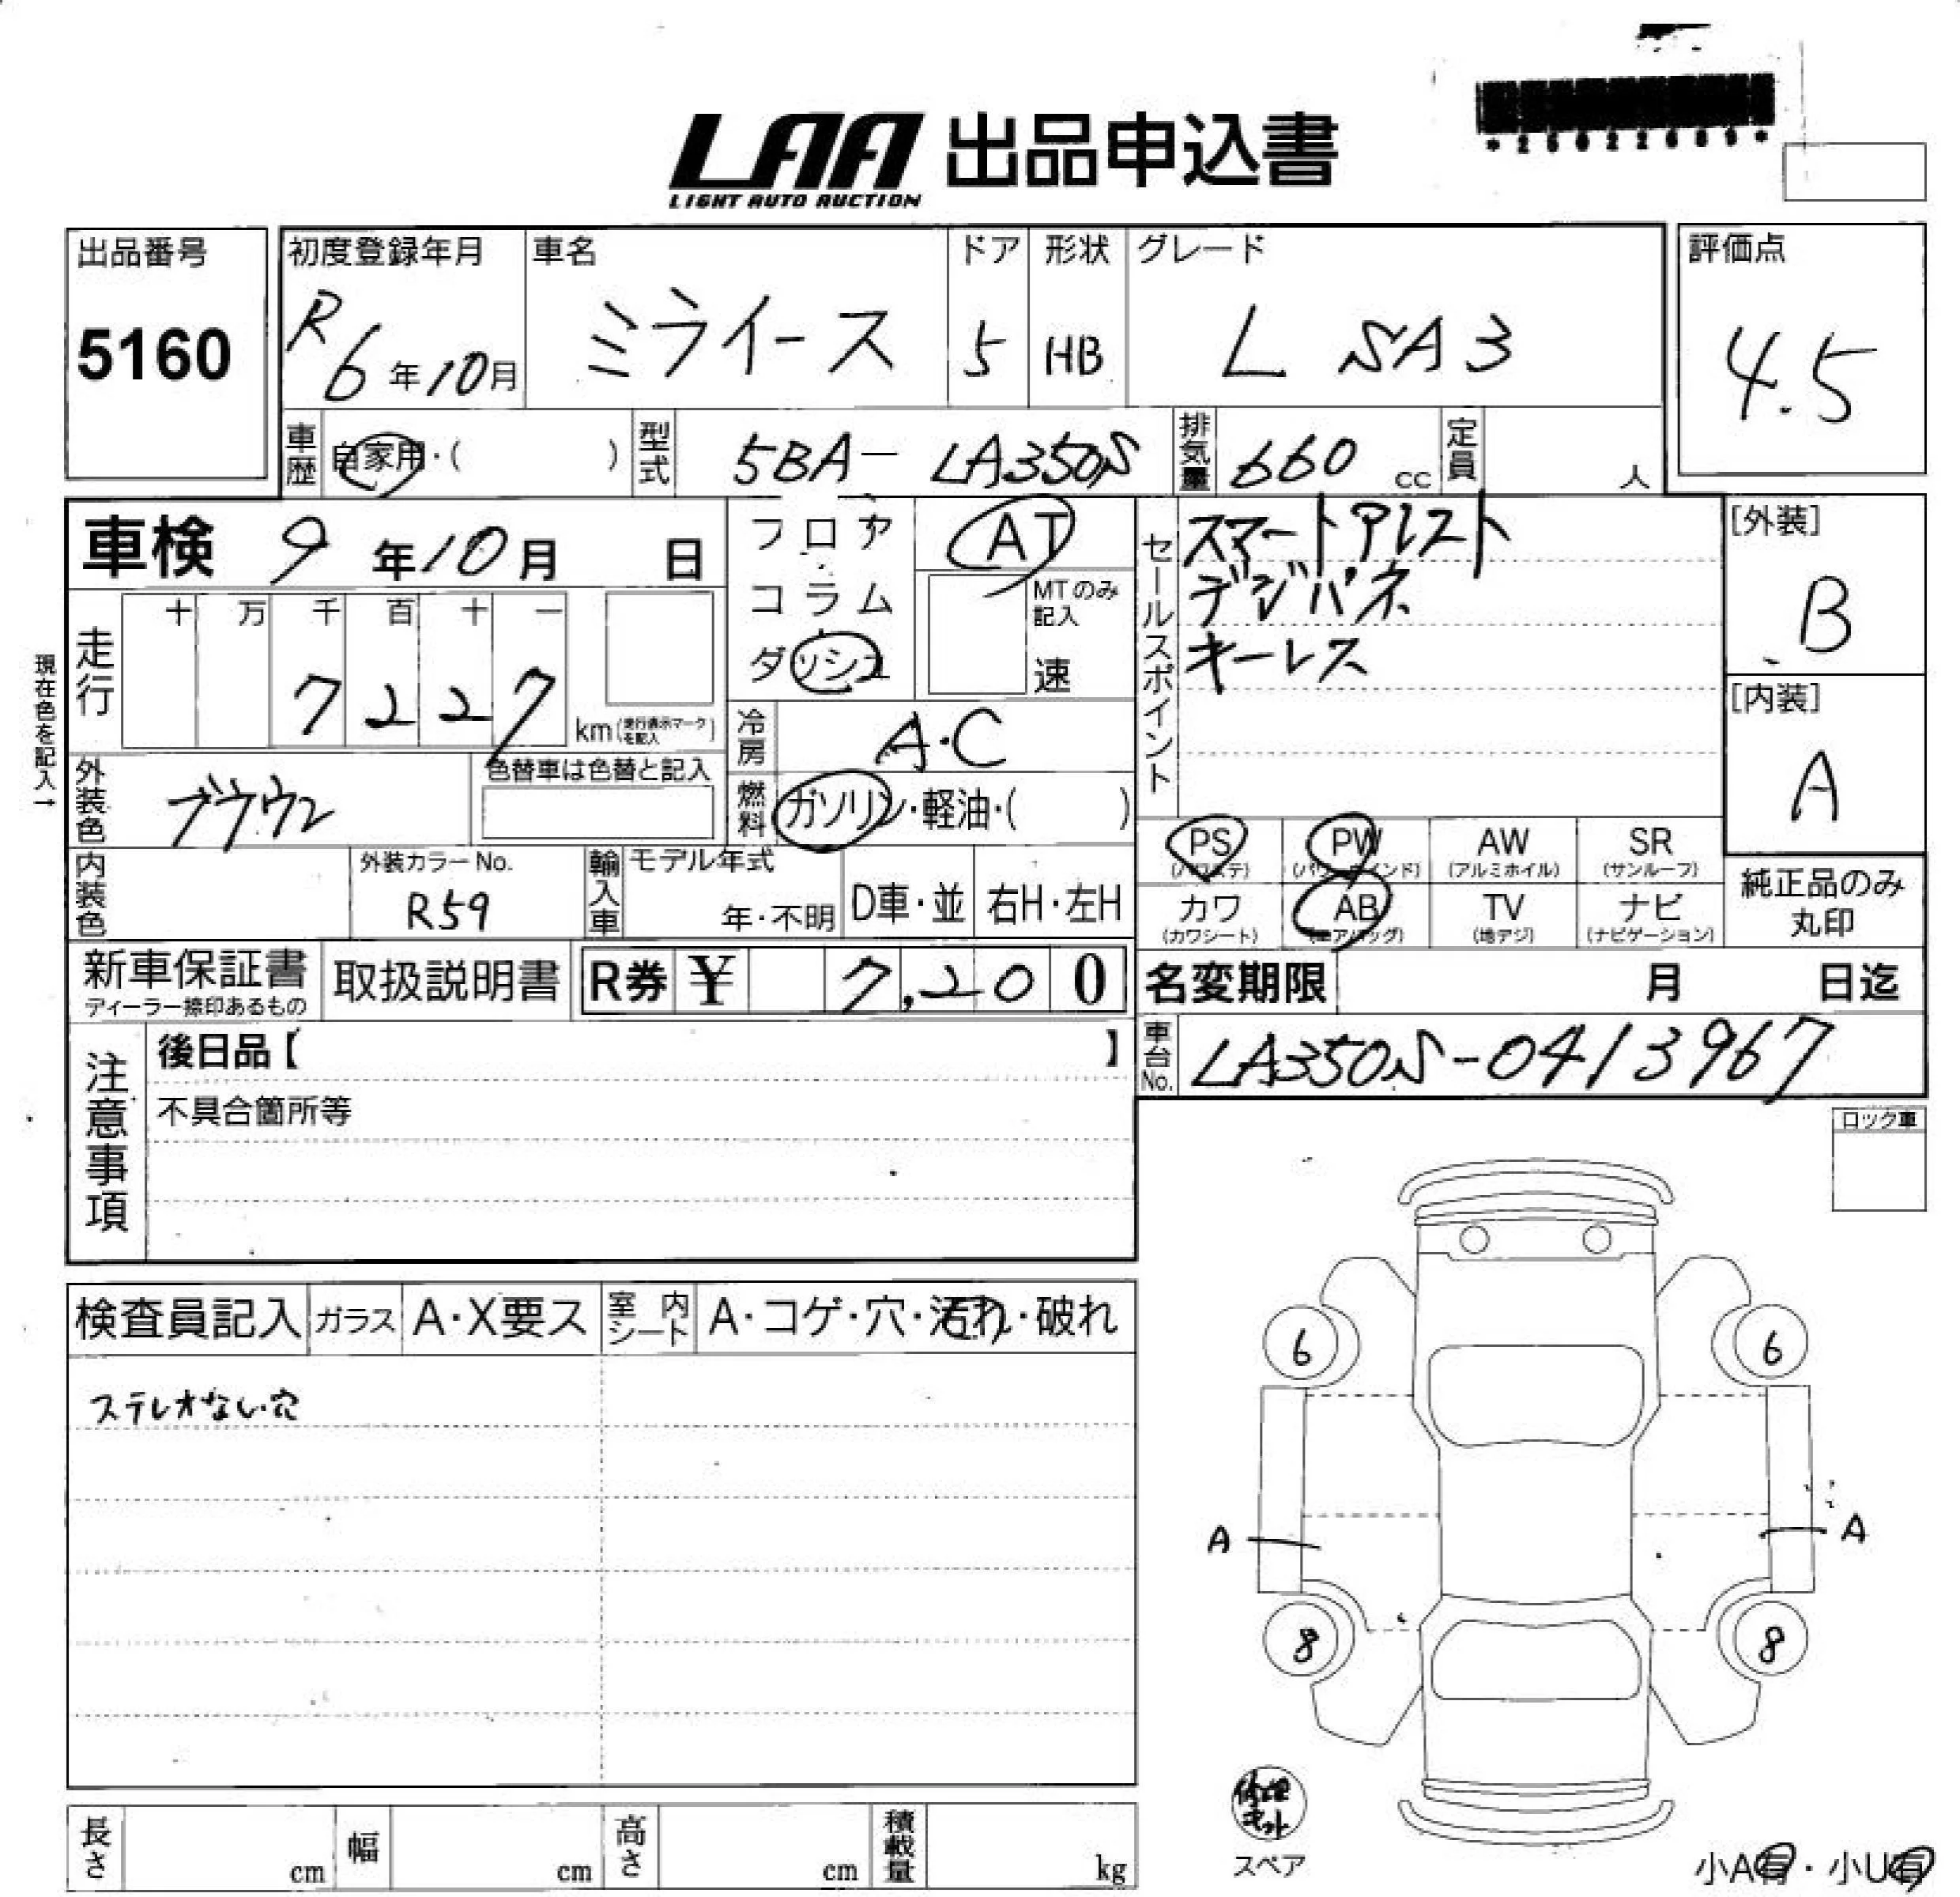 *25022689*
LAA 出品申込書
LIGHT AUTO AUCTION
出品番号
5160
初度登録年月
R6年10月
車名
ミライース
ドア
5
形状
HB
グレード
L SA3
評価点
4.5
車歴
自家用・( )
型式
5BA- LA350S
排気量
660 cc
定員
人
車検 9年10月 日
フロア
コラム
ダッシュ
AT
MTのみ記入
速
セールスポイント
スマートアシスト
デジパネ
キーレス
[外装]
B
[内装]
A
現在色を記入→
走行
十 万 千 百 十 一
7 2 2 7
km(走行表示マークを記入)
冷房
A・C
外装色
ブラウン
色替車は色替と記入
燃料
ガソリン・軽油・( )
PS (パワステ)
PW (パワーウインド)
AW (アルミホイル)
SR (サンルーフ)
カワ (カワシート)
AB (エアバッグ)
TV (地デジ)
ナビ (ナビゲーション)
純正品のみ
丸印
内装色
外装カラーNo.
R59
輸入車
モデル年式
年・不明
D車・並
右H・左H
新車保証書
ディーラー捺印あるもの
取扱説明書
R券 ¥ 7,200
名変期限 月 日迄
車台No.
LA350S-0413967
注意事項
後日品【 】
不具合箇所等
ロック車
検査員記入
ガラス
A・X要ス
室内シート
A・コゲ・穴・汚れ・破れ
ステレオない・穴
6 6
A A
8 8
修理キット
スペア
長さ cm
幅 cm
高さ cm
積載量 kg
小A有・小U有